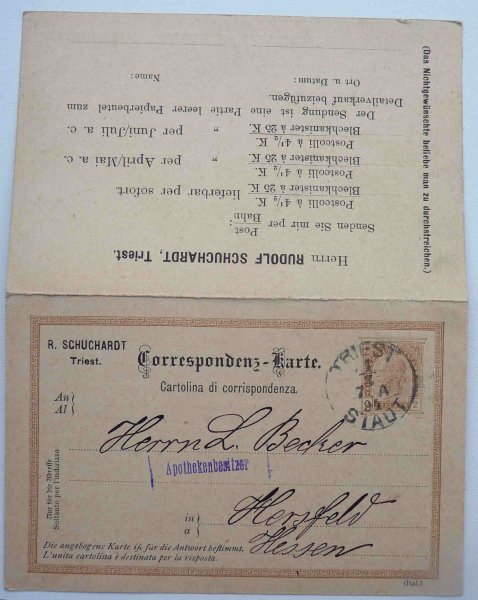 Herrn RUDOLF SCHUCHARDT, Triest.
Senden Sie mir per Post
Bahn :
Postcolli à 4½ K.
Blechkanister à 25 K. lieferbar per sofort.
Postcolli à 4½ K.
Blechkanister à 25 K. per April/Mai a. c.
Postcolli à 4½ K.
Blechkanister à 25 K. „ per Juni/Juli a. c.
Der Sendung ist eine Partie leerer Papierbeutel zum
Detailverkauf beizufügen.
Ort u. Datum: Name:
(Das Nichtgewünschte beliebe man zu durchstreichen.)
R. SCHUCHARDT
Triest.
Correspondenz-Karte.
Cartolina di corrispondenza.
TRIEST
STADT
An
Al
Herrn L. Becker
Apothekenbesitzer
in
a
Hersfeld
Hessen
Nur für die Adresse
Soltanto per l'indirizzo
Die angebogene Karte ist für die Antwort bestimmt.
L'unita cartolina è destinata per la risposta.
(Ital.)